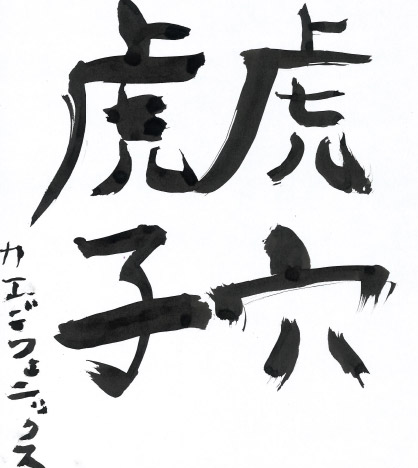 虎穴
虎子
カエデフェニックス